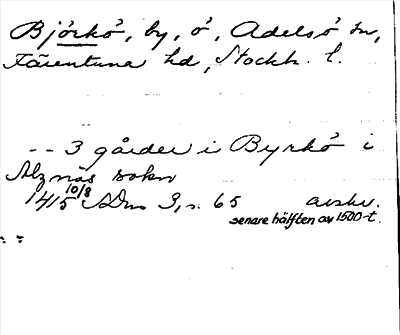 Björkö, by, ö, Adelsö sn,
Färentuna hd, Stockh. l.
-- 3 gårder i Byrkö i
Alznäs sokn
1415 10/8 SDns 3, s. 65 avskr.
senare hälften av 1500-t.